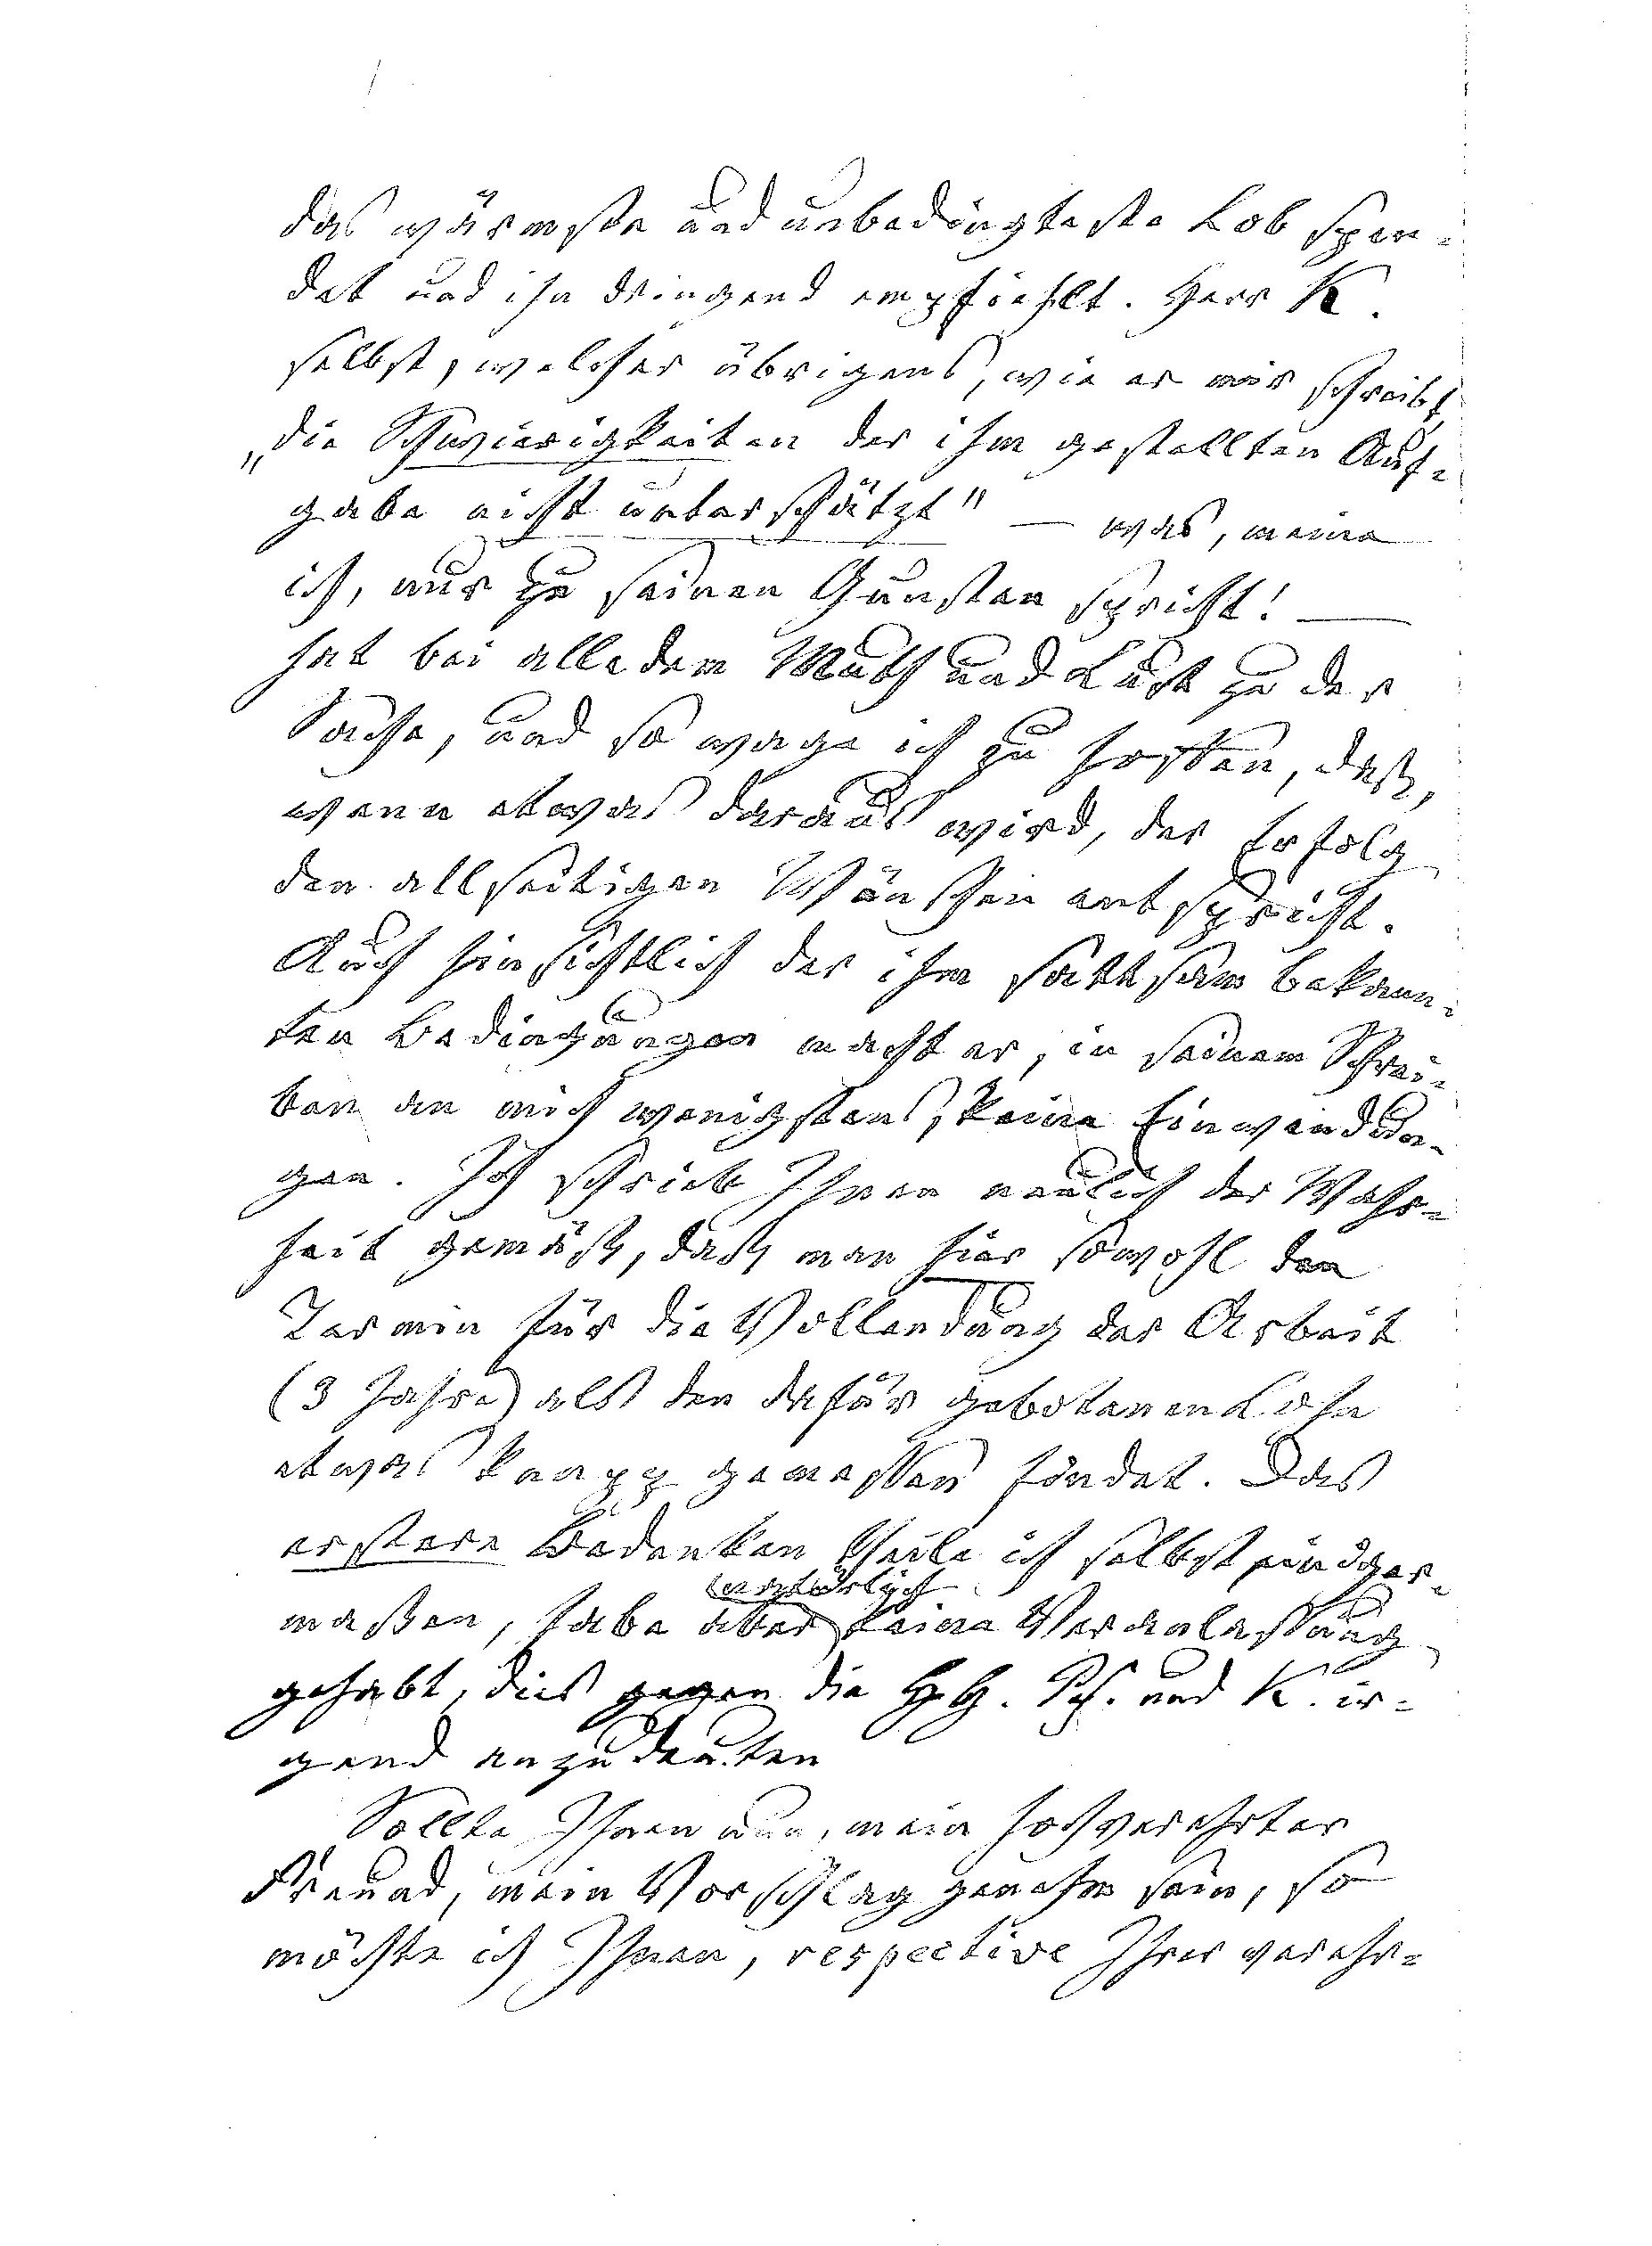 das wärmste und unbedingteste Lob spen-
det und ihn dringend empfiehlt. Herr K.
selbst, welcher übrigens, wie er mir schreibt,
„die Schwierigkeiten der ihm gestellten Auf-
gabe nicht unterschätzt" — was, meine
ich, nur zu seinen Gunsten spricht! —
hat bei alledem Muth und Lust zu der
Sache, und so wage ich zu hoffen, daß,
wenn etwas daraus wird, der Erfolg
den allseitigen Wünschen entspricht.
Auch hinsichtlich der ihm sattsam bekann-
ten Bedingungen macht er, in seinem Schrei-
ben an mich wenigstens, keine Einwendun-
gen. Ich schrieb Ihnen neulich der Wahr-
heit gemäß, daß man hier sowohl den
Termin für die Vollendung der Arbeit
(3 Jahre) als den dafür gebotenen Lohn
etwas knapp gemessen findet. Das
erstere Bedenken theile ich selbst einiger-
natürlich
maßen, habe aber keine Veranlassung
gehabt, dies gegen die HH. Sch. und K. ir-
gend anzudeuten
Sollte Ihnen nun, mein hochverehrter
Freund, mein Vorschlag genehm sein, so
möchte ich Ihnen, respective Ihrer verehr-